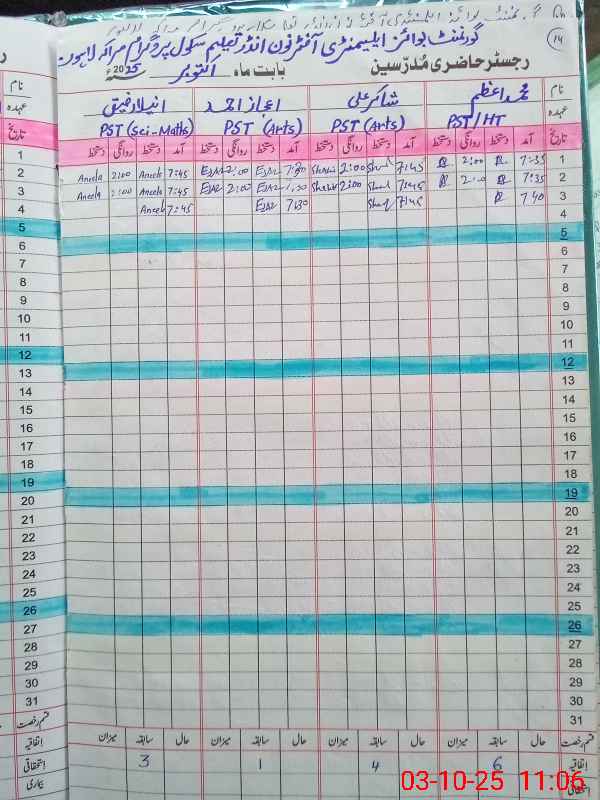 گورنمنٹ بوائز ایلیمنٹری آفٹرنون انڈر تعلیم سکول پروگرام مراکہ لاہور
14
رجسٹر حاضری مُدرّسین بابت ماہ اکتوبر سنہ 2025ء
نام محمد اعظم شاکر علی اعجاز احمد انیلا رفیق نام
عہدہ PST/HT PST (Arts) PST (Arts) PST (Sci-Maths) عہدہ
تاریخ آمد دستخط روانگی دستخط آمد دستخط روانگی دستخط آمد دستخط روانگی دستخط آمد دستخط روانگی دستخط تاریخ
1 7:35 2:00 7:45 2:00 Ejaz 2:00 Ejaz 7:45 Aneela 2:00 Aneela 1
2 7:35 7:45 2:00 Ejaz 2:00 Ejaz 7:45 Aneela 2:00 Aneela 2
3 7:40 7:45 7:30 Ejaz 7:45 Aneela 3
4 4
5 5
6 6
7 7
8 8
9 9
10 10
11 11
12 12
13 13
14 14
15 15
16 16
17 17
18 18
19 19
20 20
21 21
22 22
23 23
24 24
25 25
26 26
27 27
28 28
29 29
30 30
31 31
قسم رخصت حال سابقہ میزان حال سابقہ میزان حال سابقہ میزان حال سابقہ میزان قسم رخصت
اتفاقیہ 6 4 1 3 اتفاقیہ
استحقاقی استحقاقی
بیماری
03-10-25 11:06